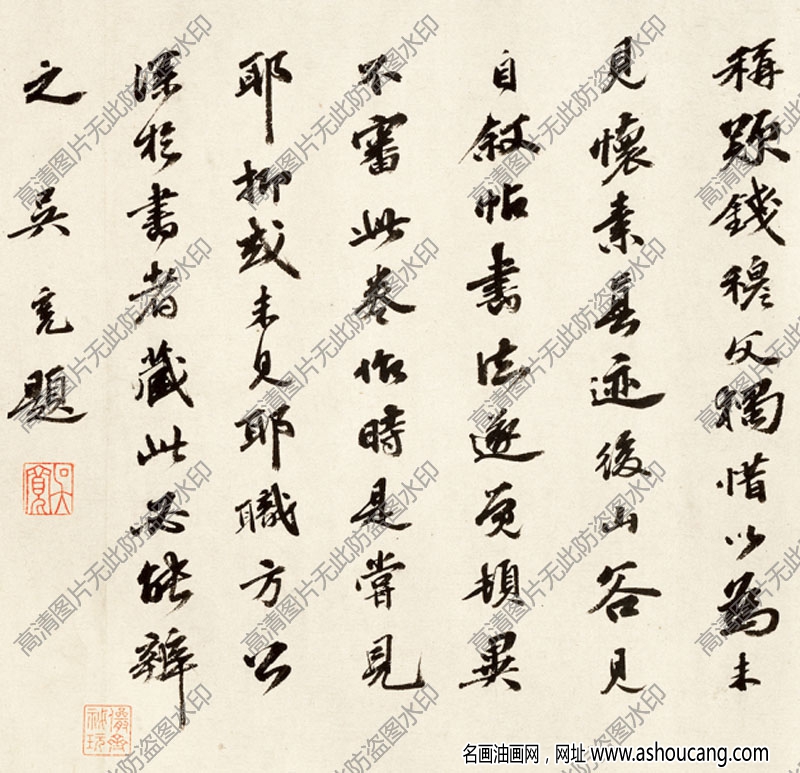 稱錢穆父獨惜以為未
見懷素真迹後山谷見
自敘帖書法遂覺頓異
不審此卷作時是嘗見
耶抑或未見耶職方公
深於書者藏此必能辨
之 吳寬題
高清图片无此防盗图水印
名画油画网，网址 www.ashoucang.com